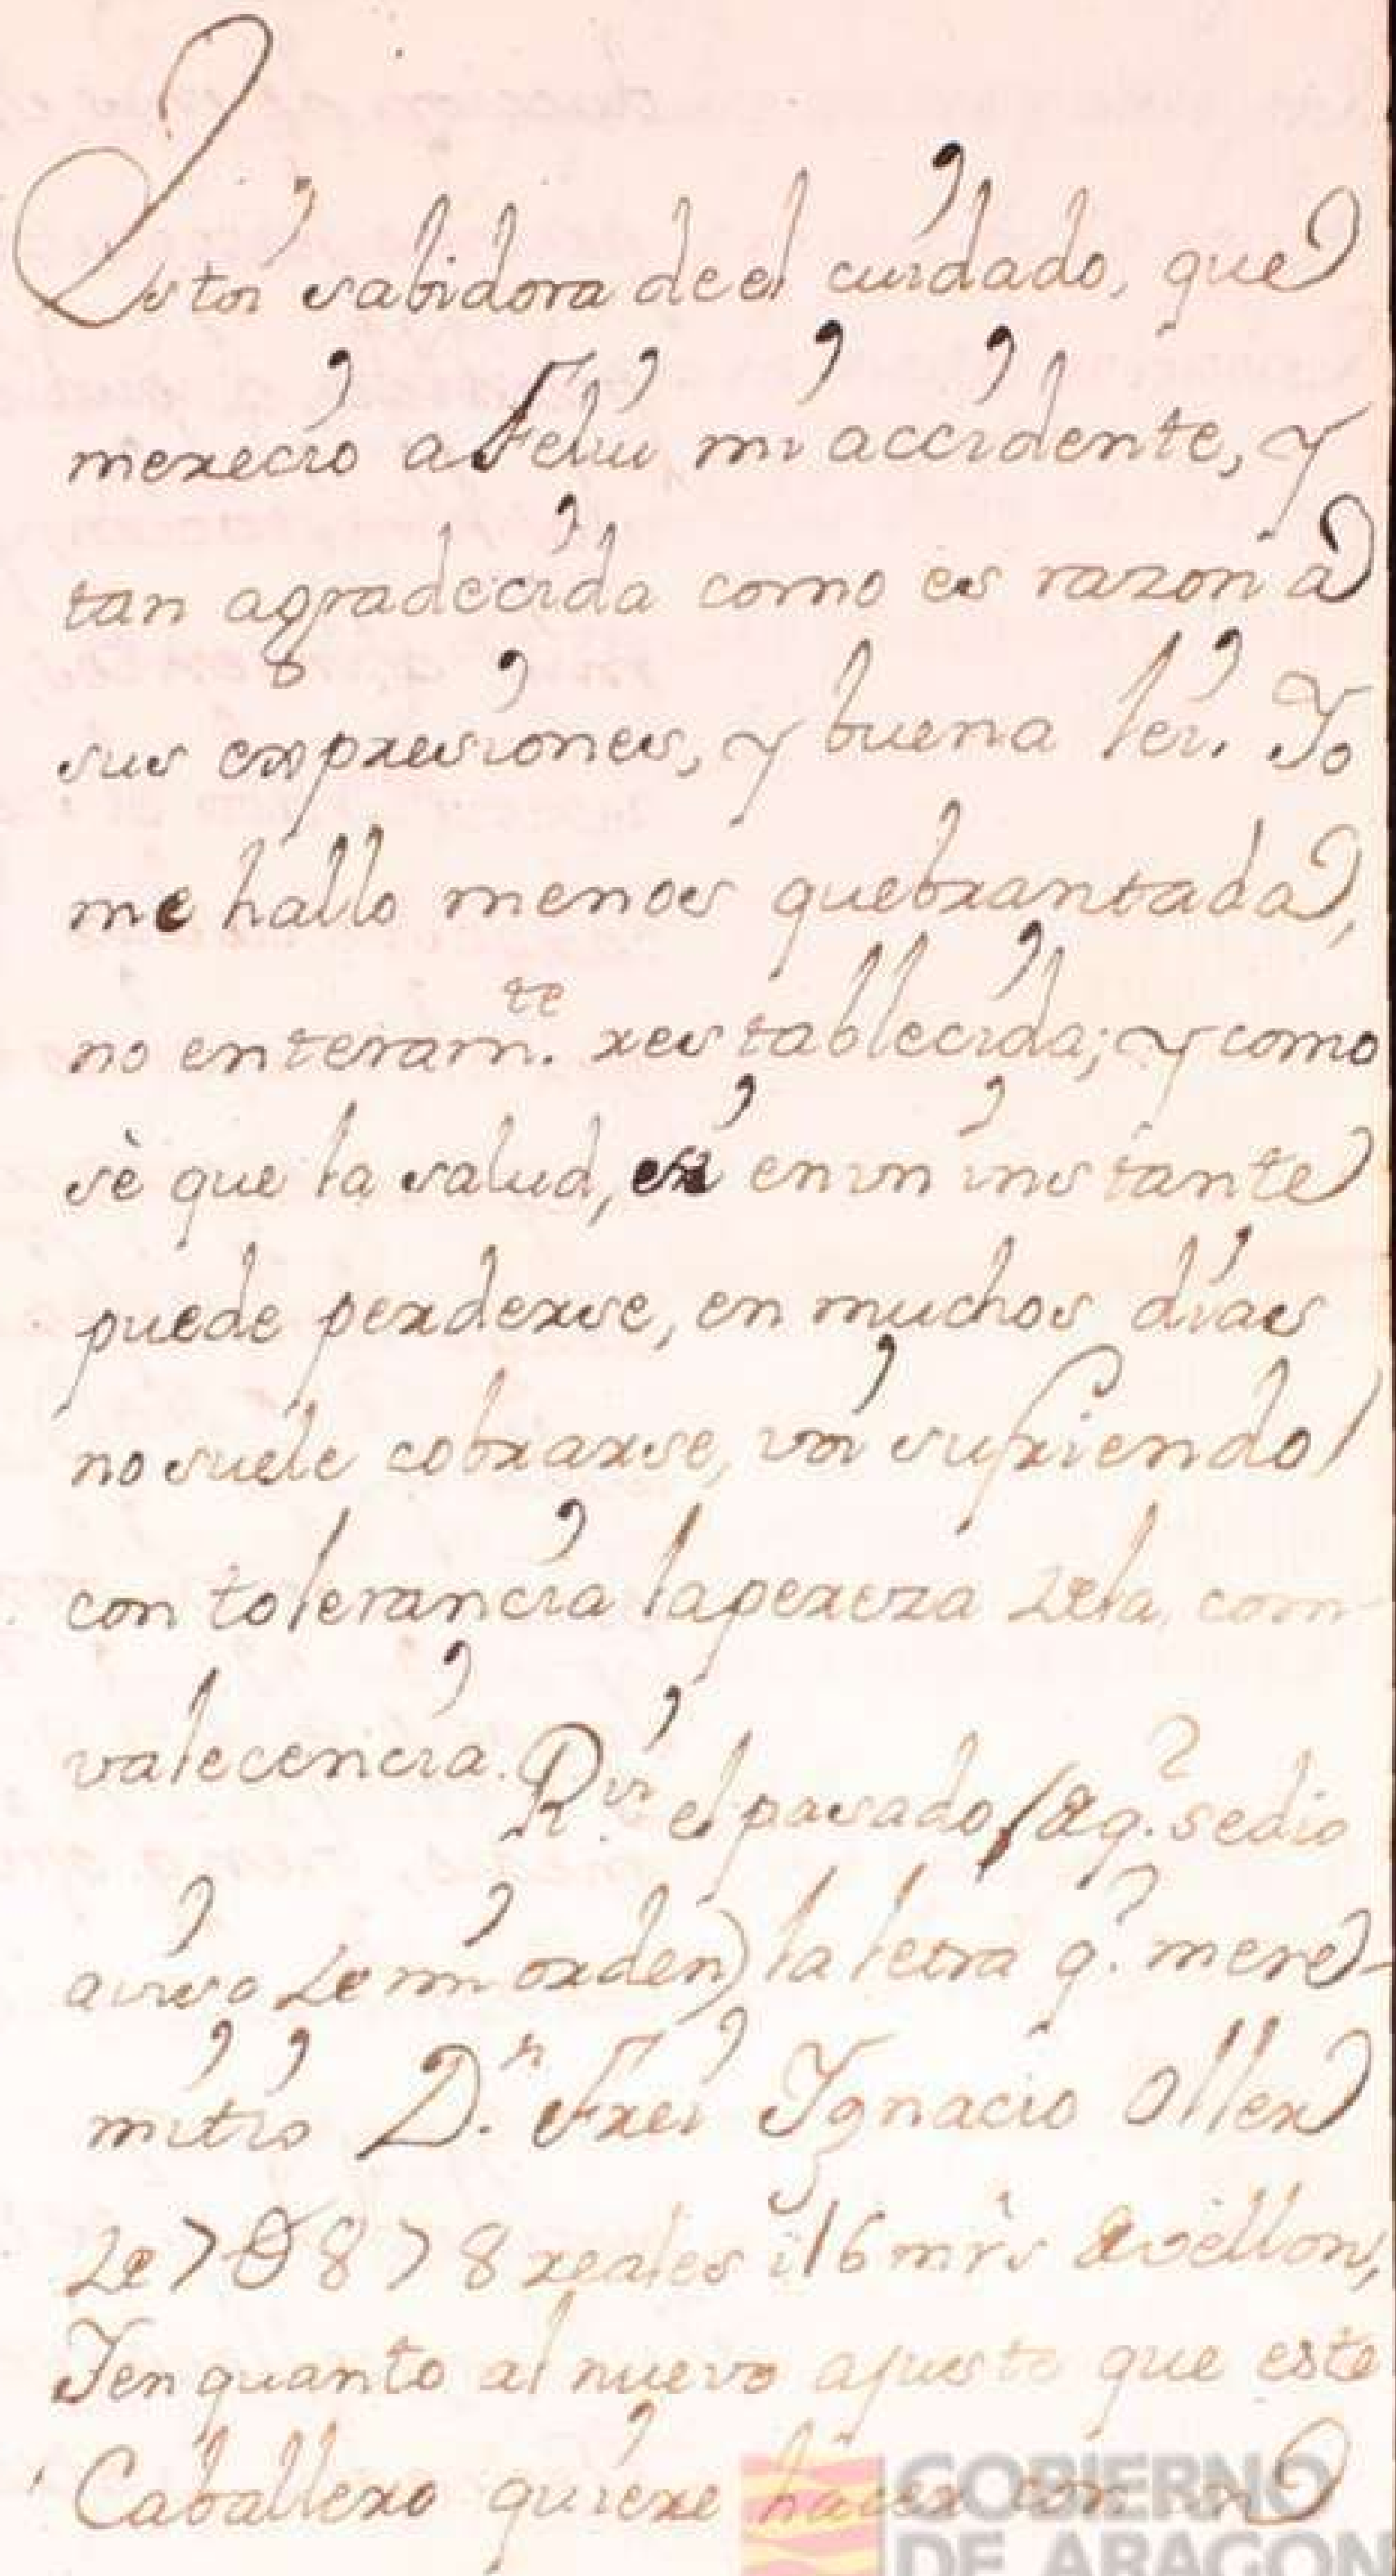 Estoi sabidora de el cuidado, que
merecio a Feliu mi accidente, y
tan agradecida como es razon a
sus expresiones, y buena lei. Yo
me hallo menos quebrantada,
no enteram.te restablecida; y como
sè que la salud, en un instante
puede perderse, en muchos dias
no suele cobrarse, voi sufriendo
con tolerancia la pereza de la com-
valecencia.
el pasado (de q.e se dio
aviso de mi orden) la letra q.e me re-
mitio D.n Frei Ignacio Oller
de 7 878 reales i 16 mrs de vellon,
Y en quanto al nuevo ajuste que este
Caballero quiere hacer con
GOBIERNO
DE ARAGON